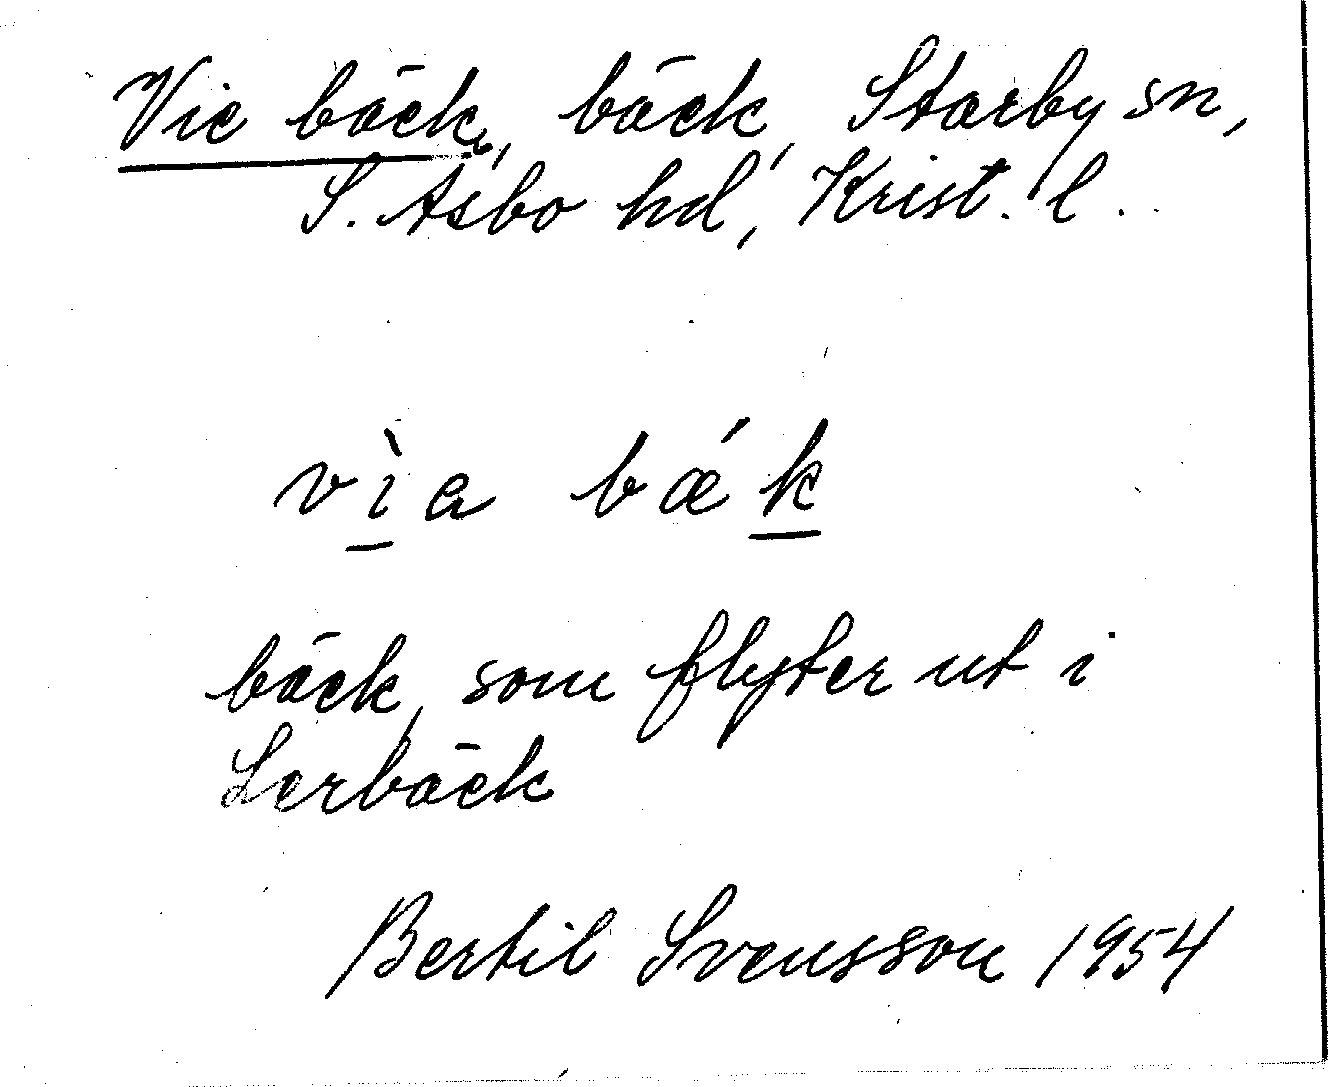 Vie bäck, bäck, Starby sn,
S. Åsbo hd, Krist. l.
vìa bǽk
bäck, som flyter ut i
Lerbäck
Bertil Svensson 1954